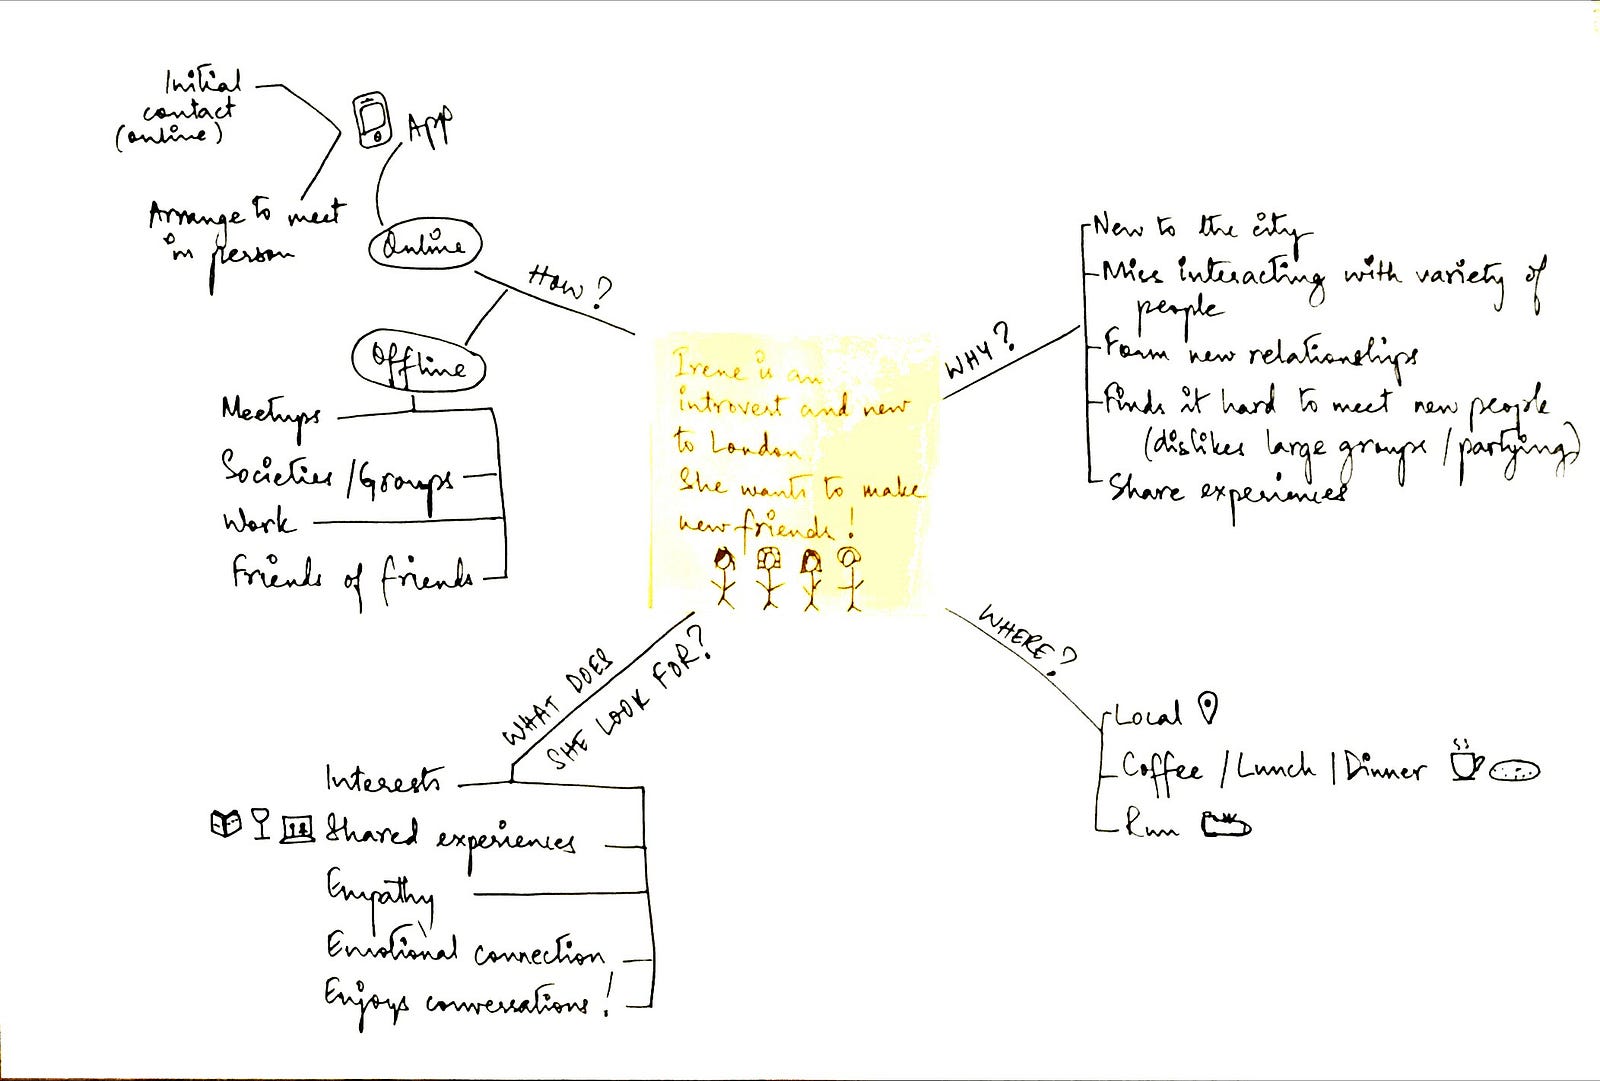 Initial
contact
(online)
App
Arrange to meet
in person
Online
HOW?
Offline
Meetups
Societies/Groups
Work
Friends of friends
Irene is an
introvert and new
to London.
She wants to make
new friends!
WHY?
New to the city
Miss interacting with variety of
people
Form new relationships
Finds it hard to meet new people
(dislikes large groups/partying)
Share experiences
WHERE?
Local
Coffee/Lunch/Dinner
Run
WHAT DOES
SHE LOOK FOR?
Interests
Shared experiences
Empathy
Emotional connection
Enjoys conversations!